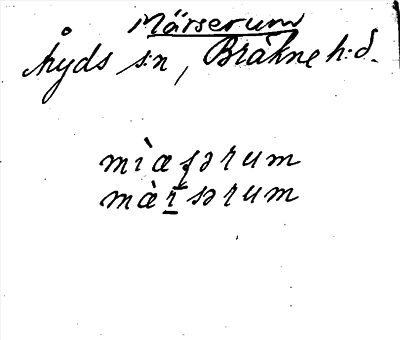 Märserum
Åryds s:n, Bräkne h:d.
mìæʂərum
mæ̀r̲sərum